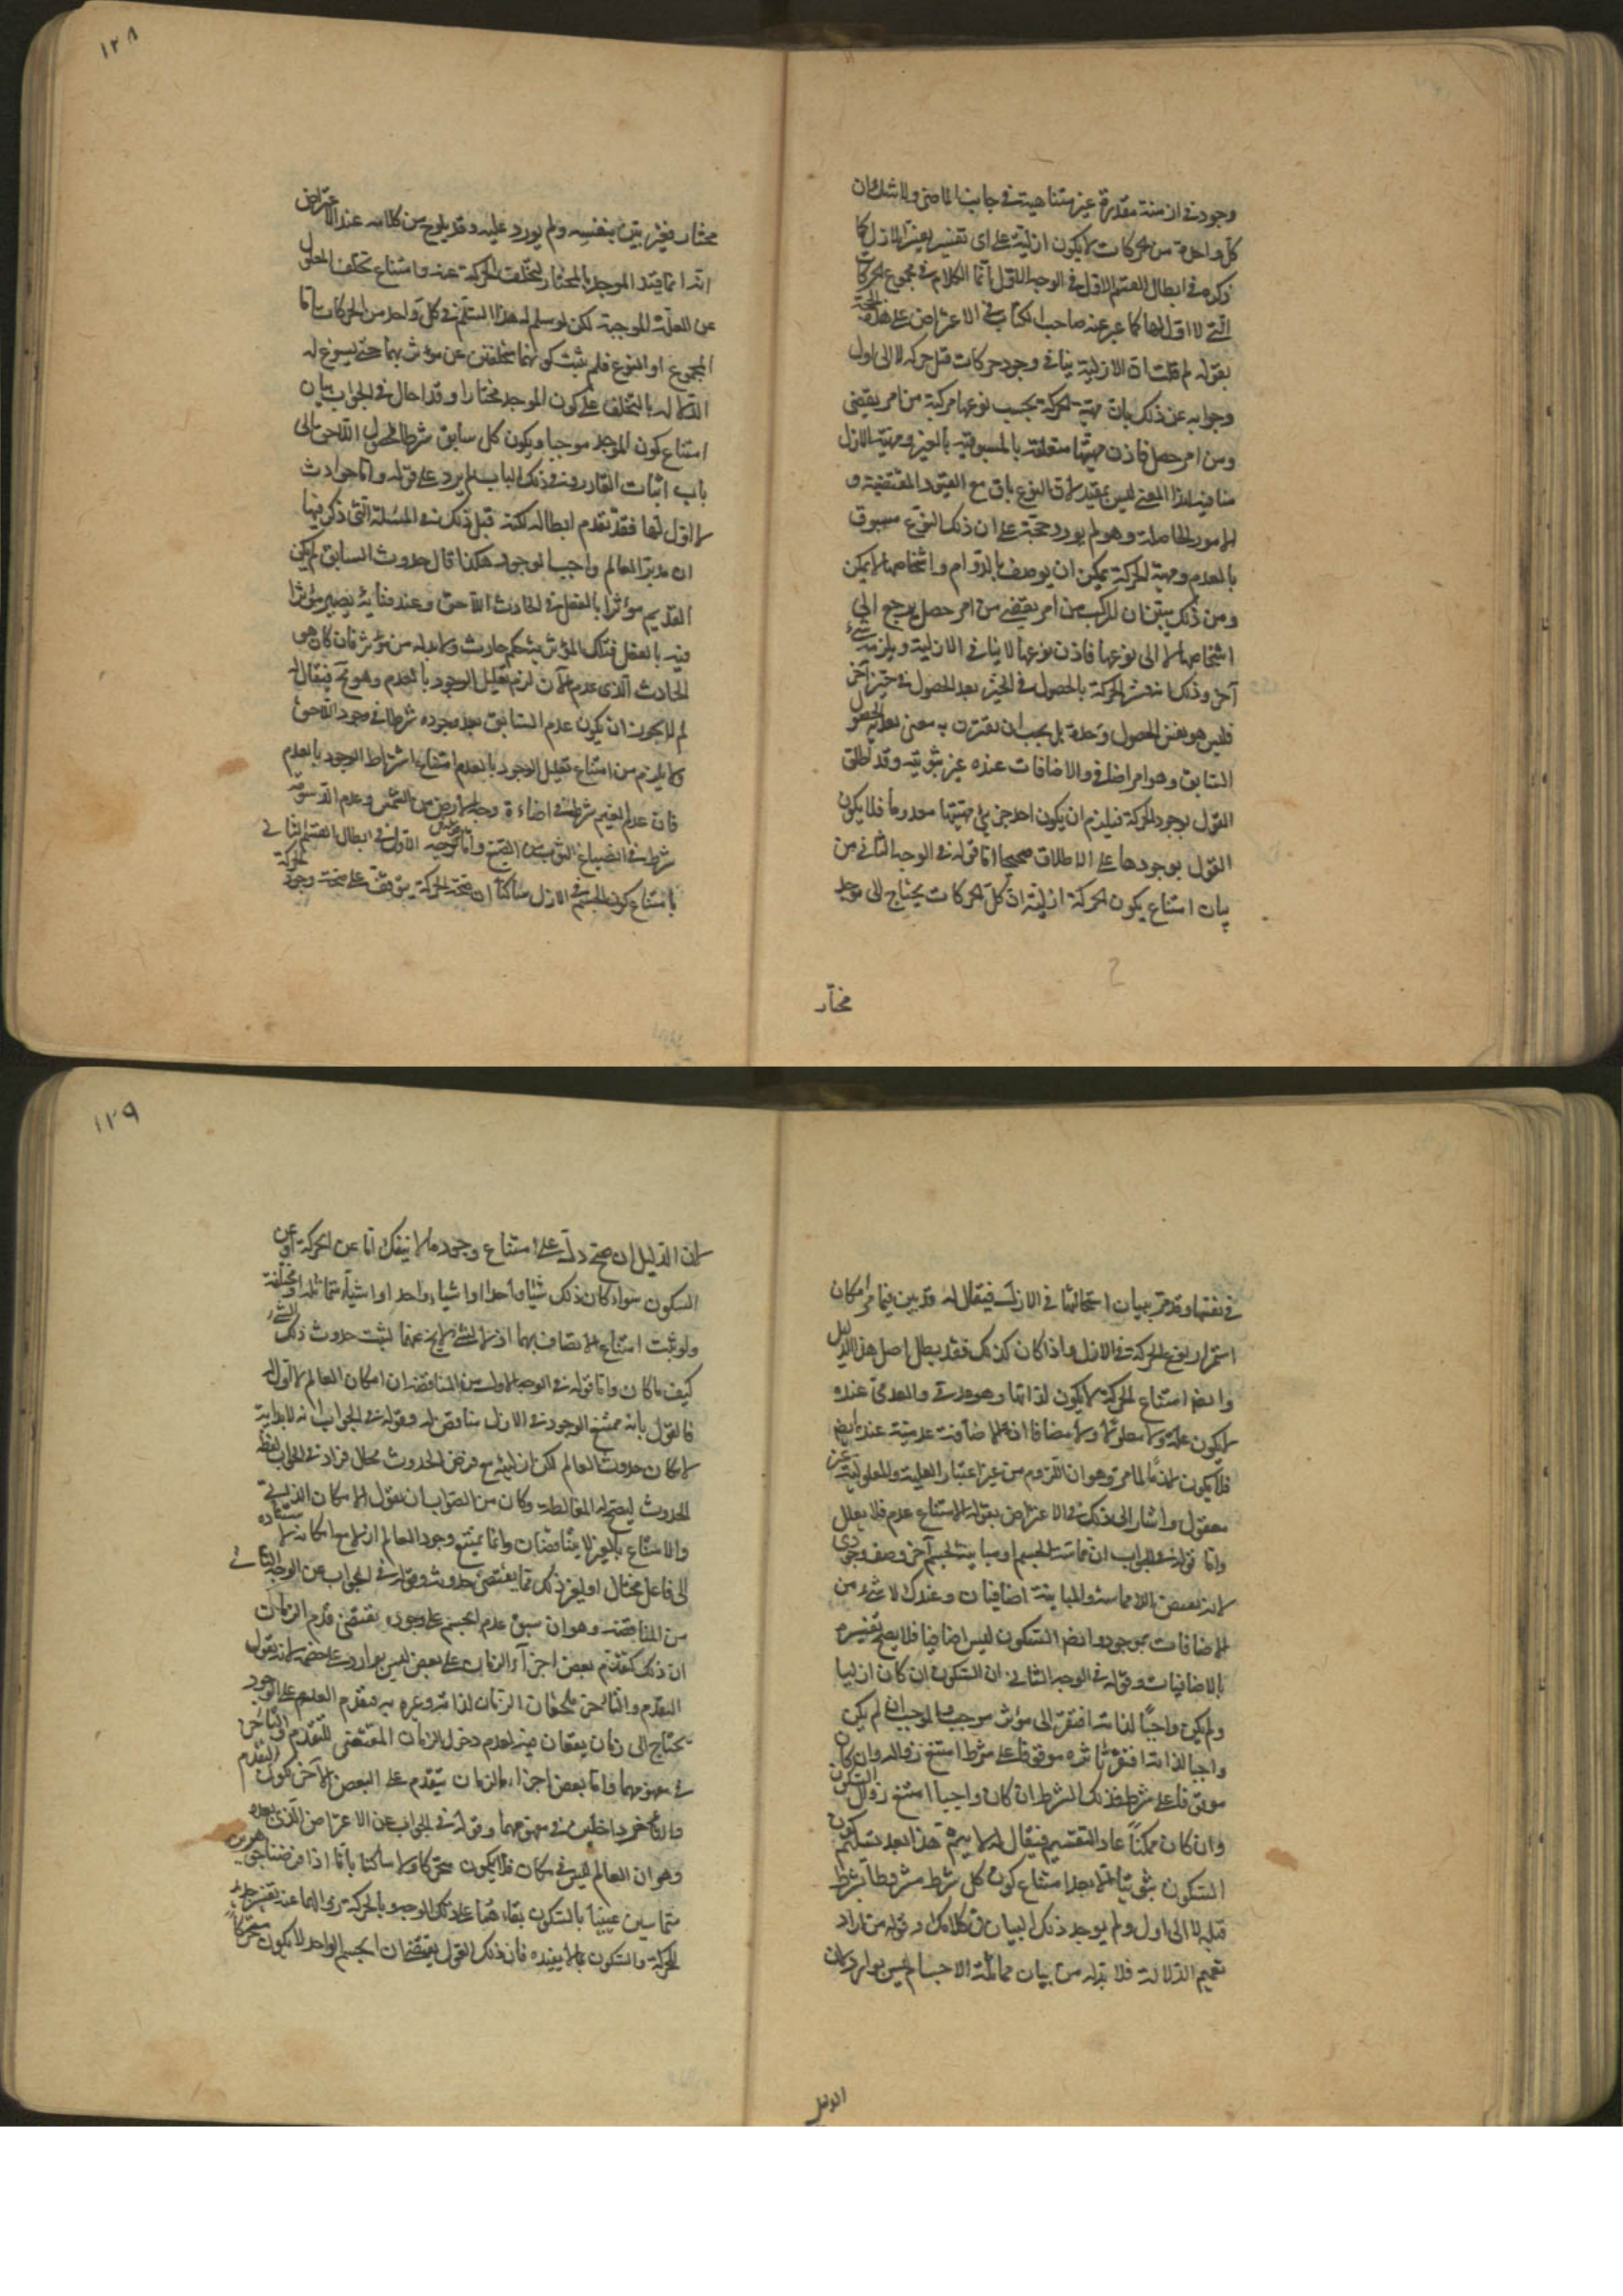 ١٢٨
وجود في ازمنة مقدرة غير متناهية في جانب الماضي ولا شك ان
كل واحدة من الحركات لا يكون ازلية على اى تفسير يعبر الازل كما
ذكره في ابطال القسم الاول في الوجه الاول انما الكلام في مجموع الحركات
التي لا اول لها كما عبر عنه صاحب الكتاب في الاعتراض على هذه الحجة
بقوله لم قلت ان الازلية ينافي وجود حركات قبل حركة لا الى اول
وجوابه عن ذلك بان مهية الحركة بحسب نوعها مركبة من امر يقضى
ومن امر حصل فاذن مهيتها متعلقة بالمسبوقية بالغير ومهية الازل
منافية لهذا المعنى ليس بمفيد لان النوع باق مع القيود المقتضية و
الامور الحاصلة وهو لم يورد حجة على ان ذلك النوع مسبوق
بالعدم ومهية الحركة يمكن ان يوصف بالدوام واشخاصها لا يمكن
ومن ذلك يتبين ان المركب من امر يقضى من امر حصل يرجع الى
اشخاصها لا الى نوعها فاذن نوعها لا ينافي الازلية ويلزمه شيء
آخر وذلك انه فسر الحركة بالحصول في الحيز بعد الحصول في حيز آخر
فليس هو نفس الحصول وحده بل يجب ان يقترن به معنى بعدية الحصول
السابق وهو امر اضافي والاضافات عنده غير ثبوتية وقد اطلق
القول بوجود الحركة فيلزم ان يكون احد جزئي مهيتها معدوما فلا يكون
القول بوجودها على الاطلاق صحيحا اما قوله في الوجه الثاني من
بيان امتناع يكون الحركة ازلية ان كل الحركات يحتاج الى موجد
مختار
مختار فغير بين بنفسه ولم يورد عليه وقد يلوح من كلامه عند الاعتراض
انه انما قيد الموجد بالمختار لتخلف الحركة عنه وامتناع تخلف المعلول
عن العلة الموجبة لكن لو سلم له هذا التسلم في كل واحد من الحركات اما
المجموع او النوع فلم يثبت كونهما متخلفين عن مؤثر بهما حتى يسوغ له
القطع له بالتخلف على كون الموجد مختارا وقد احال في الجواب بيان
امتناع كون الموجد موجبا ويكون كل سابق شرطا لحصول اللاحق الى
باب اثبات القادر وفي ذلك الباب لم يرد على قوله واما حوادث
لا اول لها فقد تقدم ابطاله لكنه قبل ذلك في المسئلة التي ذكر فيها
ان مدبر العالم واجب الوجود هكذا قال حدوث السابق لم يكن
القديم مؤثرا بالفعل في الحادث اللاحق وعند فنائه يصير مؤثرا
فيه بالفعل فتلك المؤثرية حكم حادث ولا بد له من مؤثر فان كان هو
الحادث الذي عدم الآن لزم تعليل الوجود بالعدم وهو مح فيقال له
لم لا يجوز ان يكون عدم السابق بعد وجوده شرطا في وجود اللاحق
ولا يلزم من امتناع تعليل الوجود بالعدم امتناع اشتراط الوجود بالعدم
فان عدم الغيم شرط في اضاءة وجه الارض من الشمس وعدم الدسومة
شرط في انصباغ الثوب من الصبغ واما قوله في الوجه الاول في ابطال القسم الثاني
بامتناع كون الجسم في الازل ساكنا ان صحة الحركة يتوقف على صحة وجود الحركة
١٢٩
في نفسها وقد مر ببيان استحالتها في الازل فيقال له قد بين فيما مر امكان
استمرار نوع الحركة في الازل واذا كان كذلك فقد بطل اصل هذا الدليل
وايضا امتناع الحركة لا يكون لذاتها وهو عدمي والعدمي عنده
لا يكون علة ولا معلولا ولا مضافا اذ الاضافة عدمية عنده ايضا
فلا يكون لازما لما مر وهو ان اللزوم من غير اعتبار العلية والمعلولية غير
معقول واشار الى ذلك في الاعتراض بقوله الامتناع عدم فلا يعلل
واما قوله في الجواب ان مماسة الجسم او مباينة لجسم آخر وصف وجودى
لانه نقيض اللامماسة والمباينة اضافيان وعندك لا شيء من
الاضافات بموجود وايضا السكون ليس اضافيا فلا يصح تفسيره
بالاضافيات وقوله في الوجه الثاني ان السكون ان كان ازليا
ولم يكن واجبا لذاته افتقر الى مؤثر موجب والموجب ان لم يكن
واجبا لذاته افتقر تاثره موقوفا على شرط امتنع زواله وان كان
موقوفا على شرط فذلك الشرط ان كان واجبا امتنع زوال السكون
وان كان ممكنا عاد التقسيم فيقال له لا يتم هذا بعد تسليم كون
السكون ثبوتيا الا بعد امتناع كون كل شرط مشروطا بشرط
قبله لا الى اول ولم يوجد ذلك البيان في كلامك وقوله من اراد
تعميم الدلالة فلا بد له من بيان مماثلة الاجسام ليس بوارد لان
الدليل
لان الدليل ان صح دل على امتناع وجود ما لا ينفك اما عن الحركة او عن
السكون سواء كان ذلك شيئا واحدا او اشياء واحد او اشياء متماثلة او مختلفة
ولو ثبت امتناع الاتصاف بهما اذ لا الشيء لا يخ عنهما لثبت حدوث ذلك الشيء
كيف ما كان واما قوله في الوجه الاول من المناقضة ان امكان العالم لا اول له
فالقول بانه ممتنع الوجود في الازل مناقض له وقوله في الجواب انه لا بداية
لامكان حدوث العالم لكن ازليته مع فرض الحدوث محال فزاد في الجواب لفظة
الحدوث ليصح له المغالطة وكان من الصواب ان يقول الامكان الذاتي
والامتناع بالغير لا يتناقضان وانما يمتنع وجود العالم ازلا مع امكانه لاستناده
الى فاعل مختار او لغير ذلك مما يقتضى حدوثه وقوله في الجواب عن الوجه الثاني
من المناقضة وهو ان سبق عدم الجسم على وجوده يقتضي قدم الزمان
ان ذلك كتقدم بعض اجزاء الزمان على بعض ليس بوارد على خصمه لانه يقول
التقدم والتاخر يلحقان الزمان لذاته وغيره به فتقدم العدم على الوجود
يحتاج الى زمان يقعان فيه لعدم دخول الزمان المقتضى للتقدم والتاخر
في مفهومهما واما بعض اجزاء الزمان يتقدم على البعض الآخر لكون التقدم
والتاخر داخلين في مفهومهما وقوله في الجواب عن الاعتراض الذي بعده
وهو ان العالم ليس في مكان فلا يكون متحركا ولا ساكنا بانا اذا فرضنا جوهرين
متماسين عنينا بالسكون بقاءهما على ذلك الوجه وبالحركة زوالهما عنه تفسير
للحركة والسكون بما لا يفيده فان ذلك القول يقتضى ان الجسم الواحد لا يكون متحركا